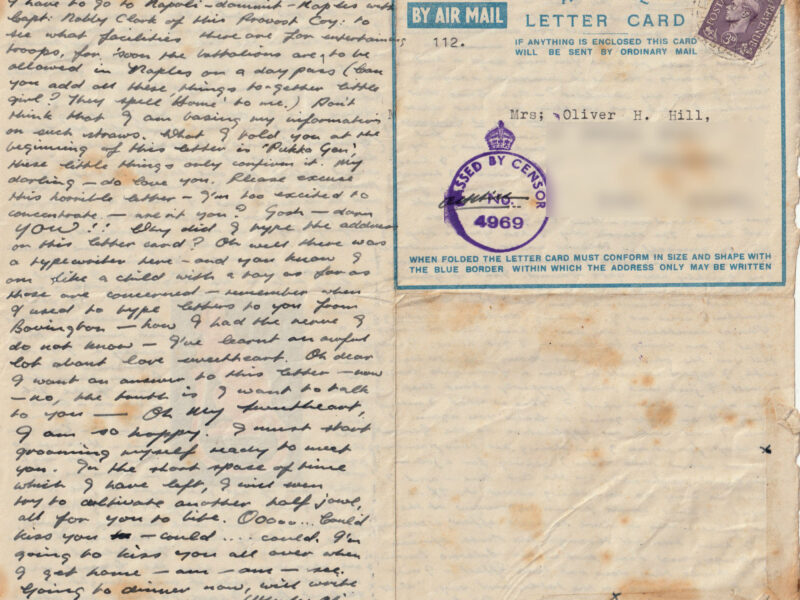 I have to go to Napoli - dammit - Naples with
Capt: Nobby Clark of this Provost Coy: to
see what facilities there are for entertaining
troops, for soon the battalions are, to be
allowed in Naples on a day pass (Can
you add all these things to-gether little
girl? They spell 'Home' to me.) Don't
think that I am basing my information
on such straws. What I told you at the
beginning of this letter is 'Pukka Gen'.
these little things only confirm it. My
darling - do love you. Please excuse
this horrible letter - I'm too excited to
concentrate - aren't you? Gosh - damn
YOU!! Why did I type the address
on this letter card? Oh well there was
a typewriter here - and you know I
am like a child with a toy as far as
those are concerned - remember when
I used to type letters to you from
Bovington - how I had the nerve I
do not know - I've learnt an awful
lot about love sweetheart. Oh dear
I want an answer to this letter - now
- no, the truth is I want to talk
to you — Oh my sweetheart,
I am so happy. I must start
grooming myself ready to meet
you. In the short space of time
which I have left, I will even
try to cultivate another half jowl,
all for you to bite. Ooooo... Could
kiss you - could .... could. I'm
going to kiss you all over when
I get home - am - am - see.
Going to dinner now, will write
BY AIR MAIL
LETTER CARD
IF ANYTHING IS ENCLOSED THIS CARD
WILL BE SENT BY ORDINARY MAIL
112.
POSTAGE
3D
Mrs; Oliver H. Hill,
PASSED BY CENSOR
No.
4969
WHEN FOLDED THE LETTER CARD MUST CONFORM IN SIZE AND SHAPE WITH
THE BLUE BORDER WITHIN WHICH THE ADDRESS ONLY MAY BE WRITTEN